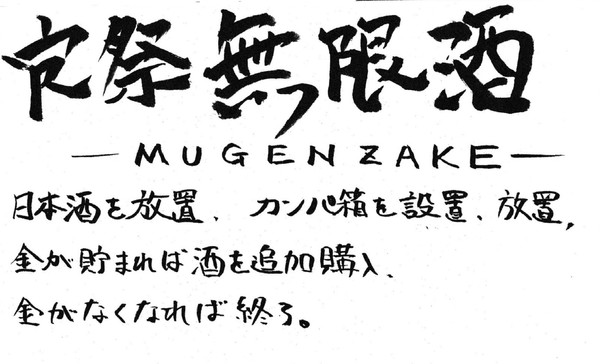 祭無限酒
—MUGENZAKE—
日本酒を放置、カンパ箱を設置、放置,
金が貯まれば酒を追加購入、
金がなくなれば終る。